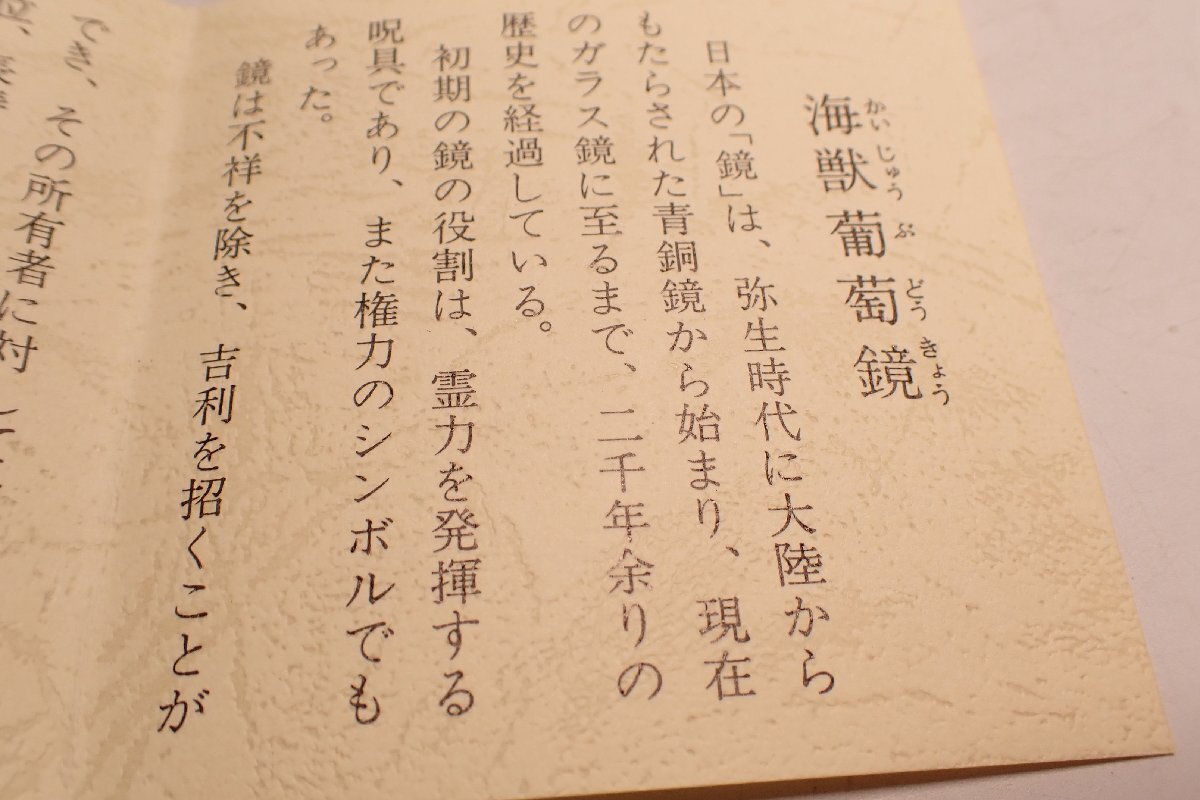 海獣葡萄鏡
かいじゅうぶどうきょう
日本の「鏡」は、弥生時代に大陸から
もたらされた青銅鏡から始まり、現在
のガラス鏡に至るまで、二千年余りの
歴史を経過している。
初期の鏡の役割は、霊力を発揮する
呪具であり、また権力のシンボルでも
あった。
鏡は不祥を除き、吉利を招くことが
でき、その所有者に対